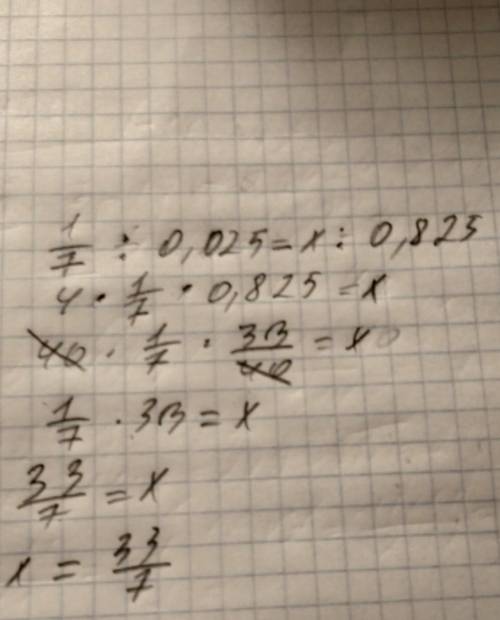 1/7 : 0,025 = x : 0,825
4 · 1/7 · 0,825 = x
40 · 1/7 · 33/40 = x
1/7 · 33 = x
33/7 = x
x = 33/7